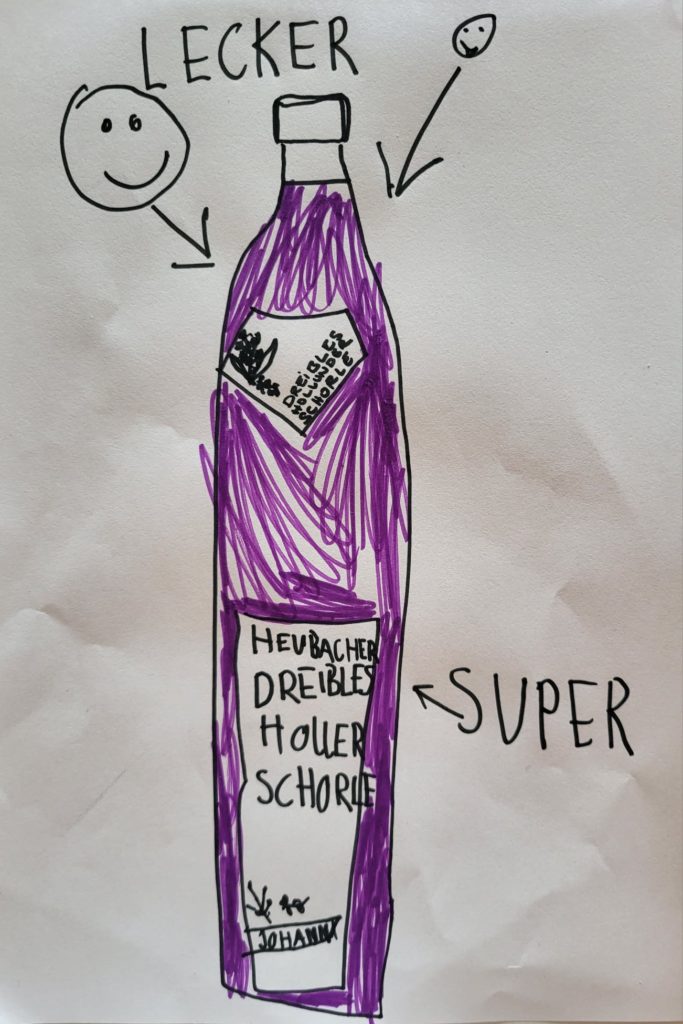 LECKER
DREIBLES
HOLUNDER
SCHORLE
HEUBACHER
DREIBLES
HOLLER
SCHORLE
SUPER
JOHANNA